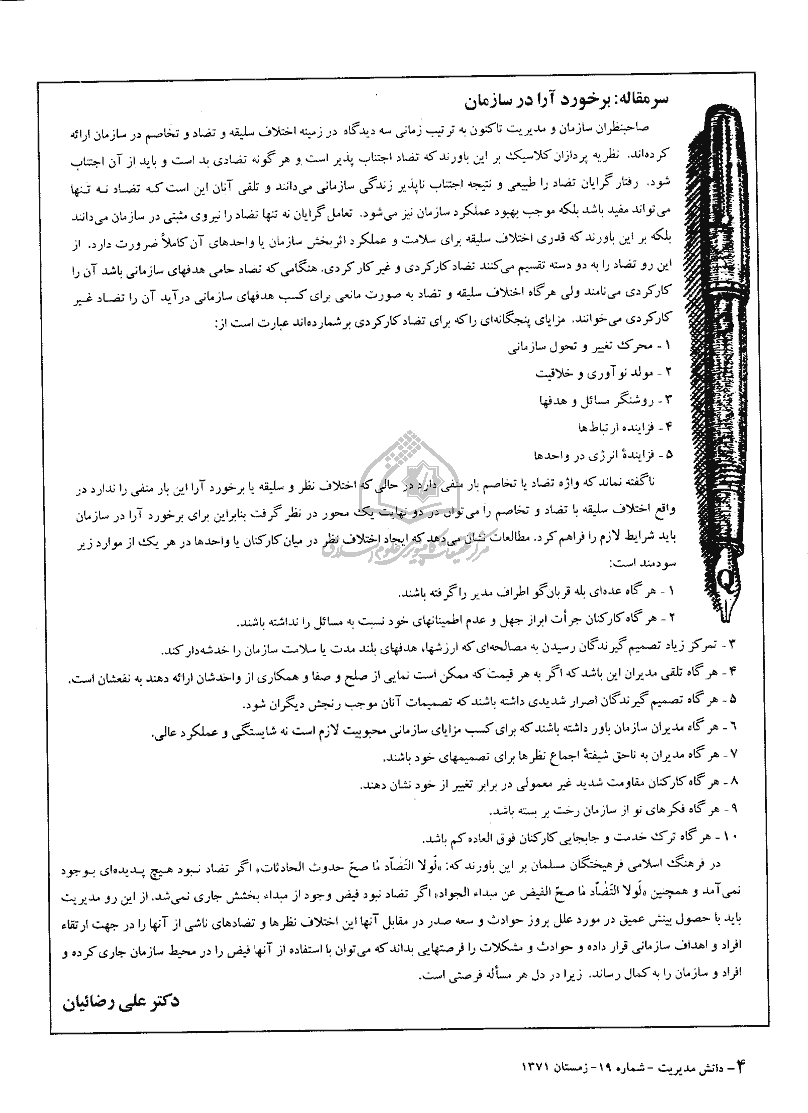 سرمقاله: برخورد آرا در سازمان
صاحبنظران سازمان و مدیریت تاکنون به ترتیب زمانی سه دیدگاه در زمینه اختلاف سلیقه و تضاد و تخاصم در سازمان ارائه
کرده‌اند. نظریه پردازان کلاسیک بر این باورند که تضاد اجتناب پذیر است و هر گونه تضادی بد است و باید از آن اجتناب
شود. رفتار گرایان تضاد را طبیعی و نتیجه اجتناب ناپذیر زندگی سازمانی می‌دانند و تلقی آنان این است که تضاد نه تنها
می‌تواند مفید باشد بلکه موجب بهبود عملکرد سازمان نیز می‌شود. تعامل‌گرایان نه تنها تضاد را نیروی مثبتی در سازمان می‌دانند
بلکه بر این باورند که قدری اختلاف سلیقه برای سلامت و عملکرد اثربخش سازمان یا واحدهای آن کاملاً ضرورت دارد. از
این رو تضاد را به دو دسته تقسیم می‌کنند تضاد کارکردی و غیر کارکردی. هنگامی که تضاد حامی هدفهای سازمانی باشد آن را
کارکردی می‌نامند ولی هرگاه اختلاف سلیقه و تضاد به صورت مانعی برای کسب هدفهای سازمانی درآید آن را تضاد غیر
کارکردی می‌خوانند. مزایای پنجگانه‌ای را که برای تضاد کارکردی برشمارده‌اند عبارت است از:
۱ - محرک تغییر و تحول سازمانی
۲ - مولد نوآوری و خلاقیت
۳ - روشنگر مسائل و هدفها
۴ - فزاینده ارتباط‌ها
۵ - فزایندهٔ انرژی در واحدها
ناگفته نماند که واژه تضاد یا تخاصم بار منفی دارد در حالی که اختلاف نظر و سلیقه یا برخورد آرا این بار منفی را ندارد در
واقع اختلاف سلیقه با تضاد و تخاصم را می‌توان در دو نهایت یک محور در نظر گرفت بنابراین برای برخورد آرا در سازمان
باید شرایط لازم را فراهم کرد. مطالعات نشان می‌دهد که ایجاد اختلاف نظر در میان کارکنان یا واحدها در هر یک از موارد زیر
سودمند است:
۱ - هر گاه عده‌ای بله قربان‌گو اطراف مدیر را گرفته باشند.
۲ - هر گاه کارکنان جرأت ابراز جهل و عدم اطمینانهای خود نسبت به مسائل را نداشته باشند.
۳ - تمرکز زیاد تصمیم گیرندگان رسیدن به مصالحه‌ای که ارزشها، هدفهای بلند مدت یا سلامت سازمان را خدشه‌دار کند.
۴ - هر گاه تلقی مدیران این باشد که اگر به هر قیمت که ممکن است نمایی از صلح و صفا و همکاری از واحدشان ارائه دهند به نفعشان است.
۵ - هر گاه تصمیم گیرندگان اصرار شدیدی داشته باشند که تصمیمات آنان موجب رنجش دیگران شود.
۶ - هر گاه مدیران سازمان باور داشته باشند که برای کسب مزایای سازمانی محبوبیت لازم است نه شایستگی و عملکرد عالی.
۷ - هر گاه مدیران به ناحق شیفتهٔ اجماع نظرها برای تصمیمهای خود باشند.
۸ - هر گاه کارکنان مقاومت شدید غیر معمولی در برابر تغییر از خود نشان دهند.
۹ - هر گاه فکرهای نو از سازمان رخت بر بسته باشد.
۱۰ - هر گاه ترک خدمت و جابجایی کارکنان فوق العاده کم باشد.
در فرهنگ اسلامی فرهیختگان مسلمان بر این باورند که: «لَولا التَّضاد مٰا صحّ حدوث الحادثات» اگر تضاد نبود هیچ پدیده‌ای بوجود
نمی‌آمد و همچنین «لَولا التَّضاد مٰا صحّ الفیض عن مبداء الجواد» اگر تضاد نبود فیض وجود از مبداء بخشش جاری نمی‌شد. از این رو مدیریت
باید با حصول بینش عمیق در مورد علل بروز حوادث و سعه صدر در مقابل آنها این اختلاف نظرها و تضادهای ناشی از آنها را در جهت ارتقاء
افراد و اهداف سازمانی قرار داده و حوادث و مشکلات را فرصتهایی بداند که می‌توان با استفاده از آنها فیض را در محیط سازمان جاری کرده و
افراد و سازمان را به کمال رساند. زیرا در دل هر مسأله فرصتی است.
دکتر علی رضائیان
۴ - دانش مدیریت - شماره ۱۹ - زمستان ۱۳۷۱
مرکز تحقیقات کامپیوتری علوم اسلامی